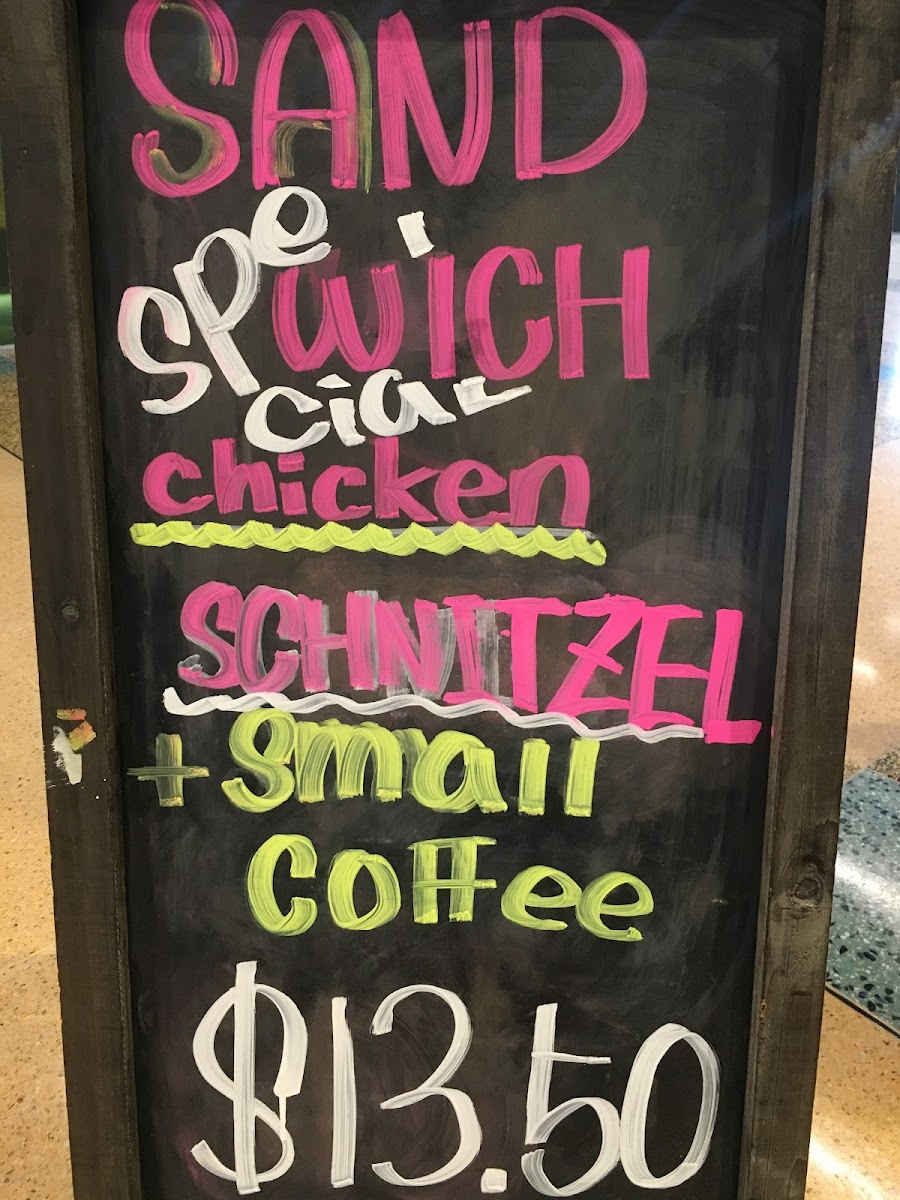 SAND
spe
WiCH
cial
chicken
SCHNITZEL
+ Small
Coffee
$13.50